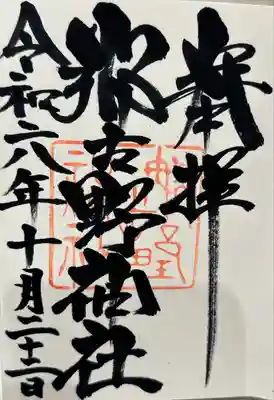 奉拝
古野神社
令和六年十月二十一日